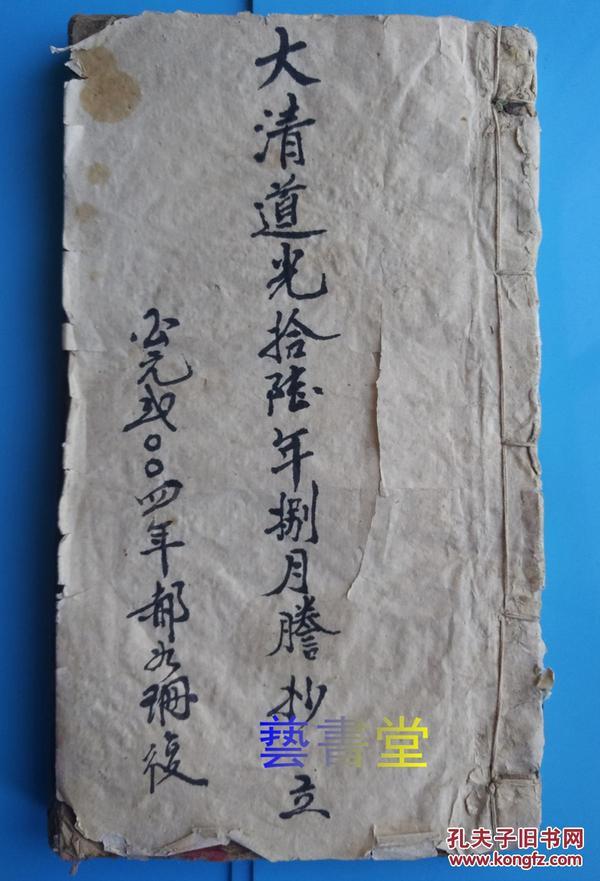 大清道光拾陸年捌月謄抄立
公元弍〇〇四年郝九珊復
藝書堂
孔夫子旧书网
www.kongfz.com